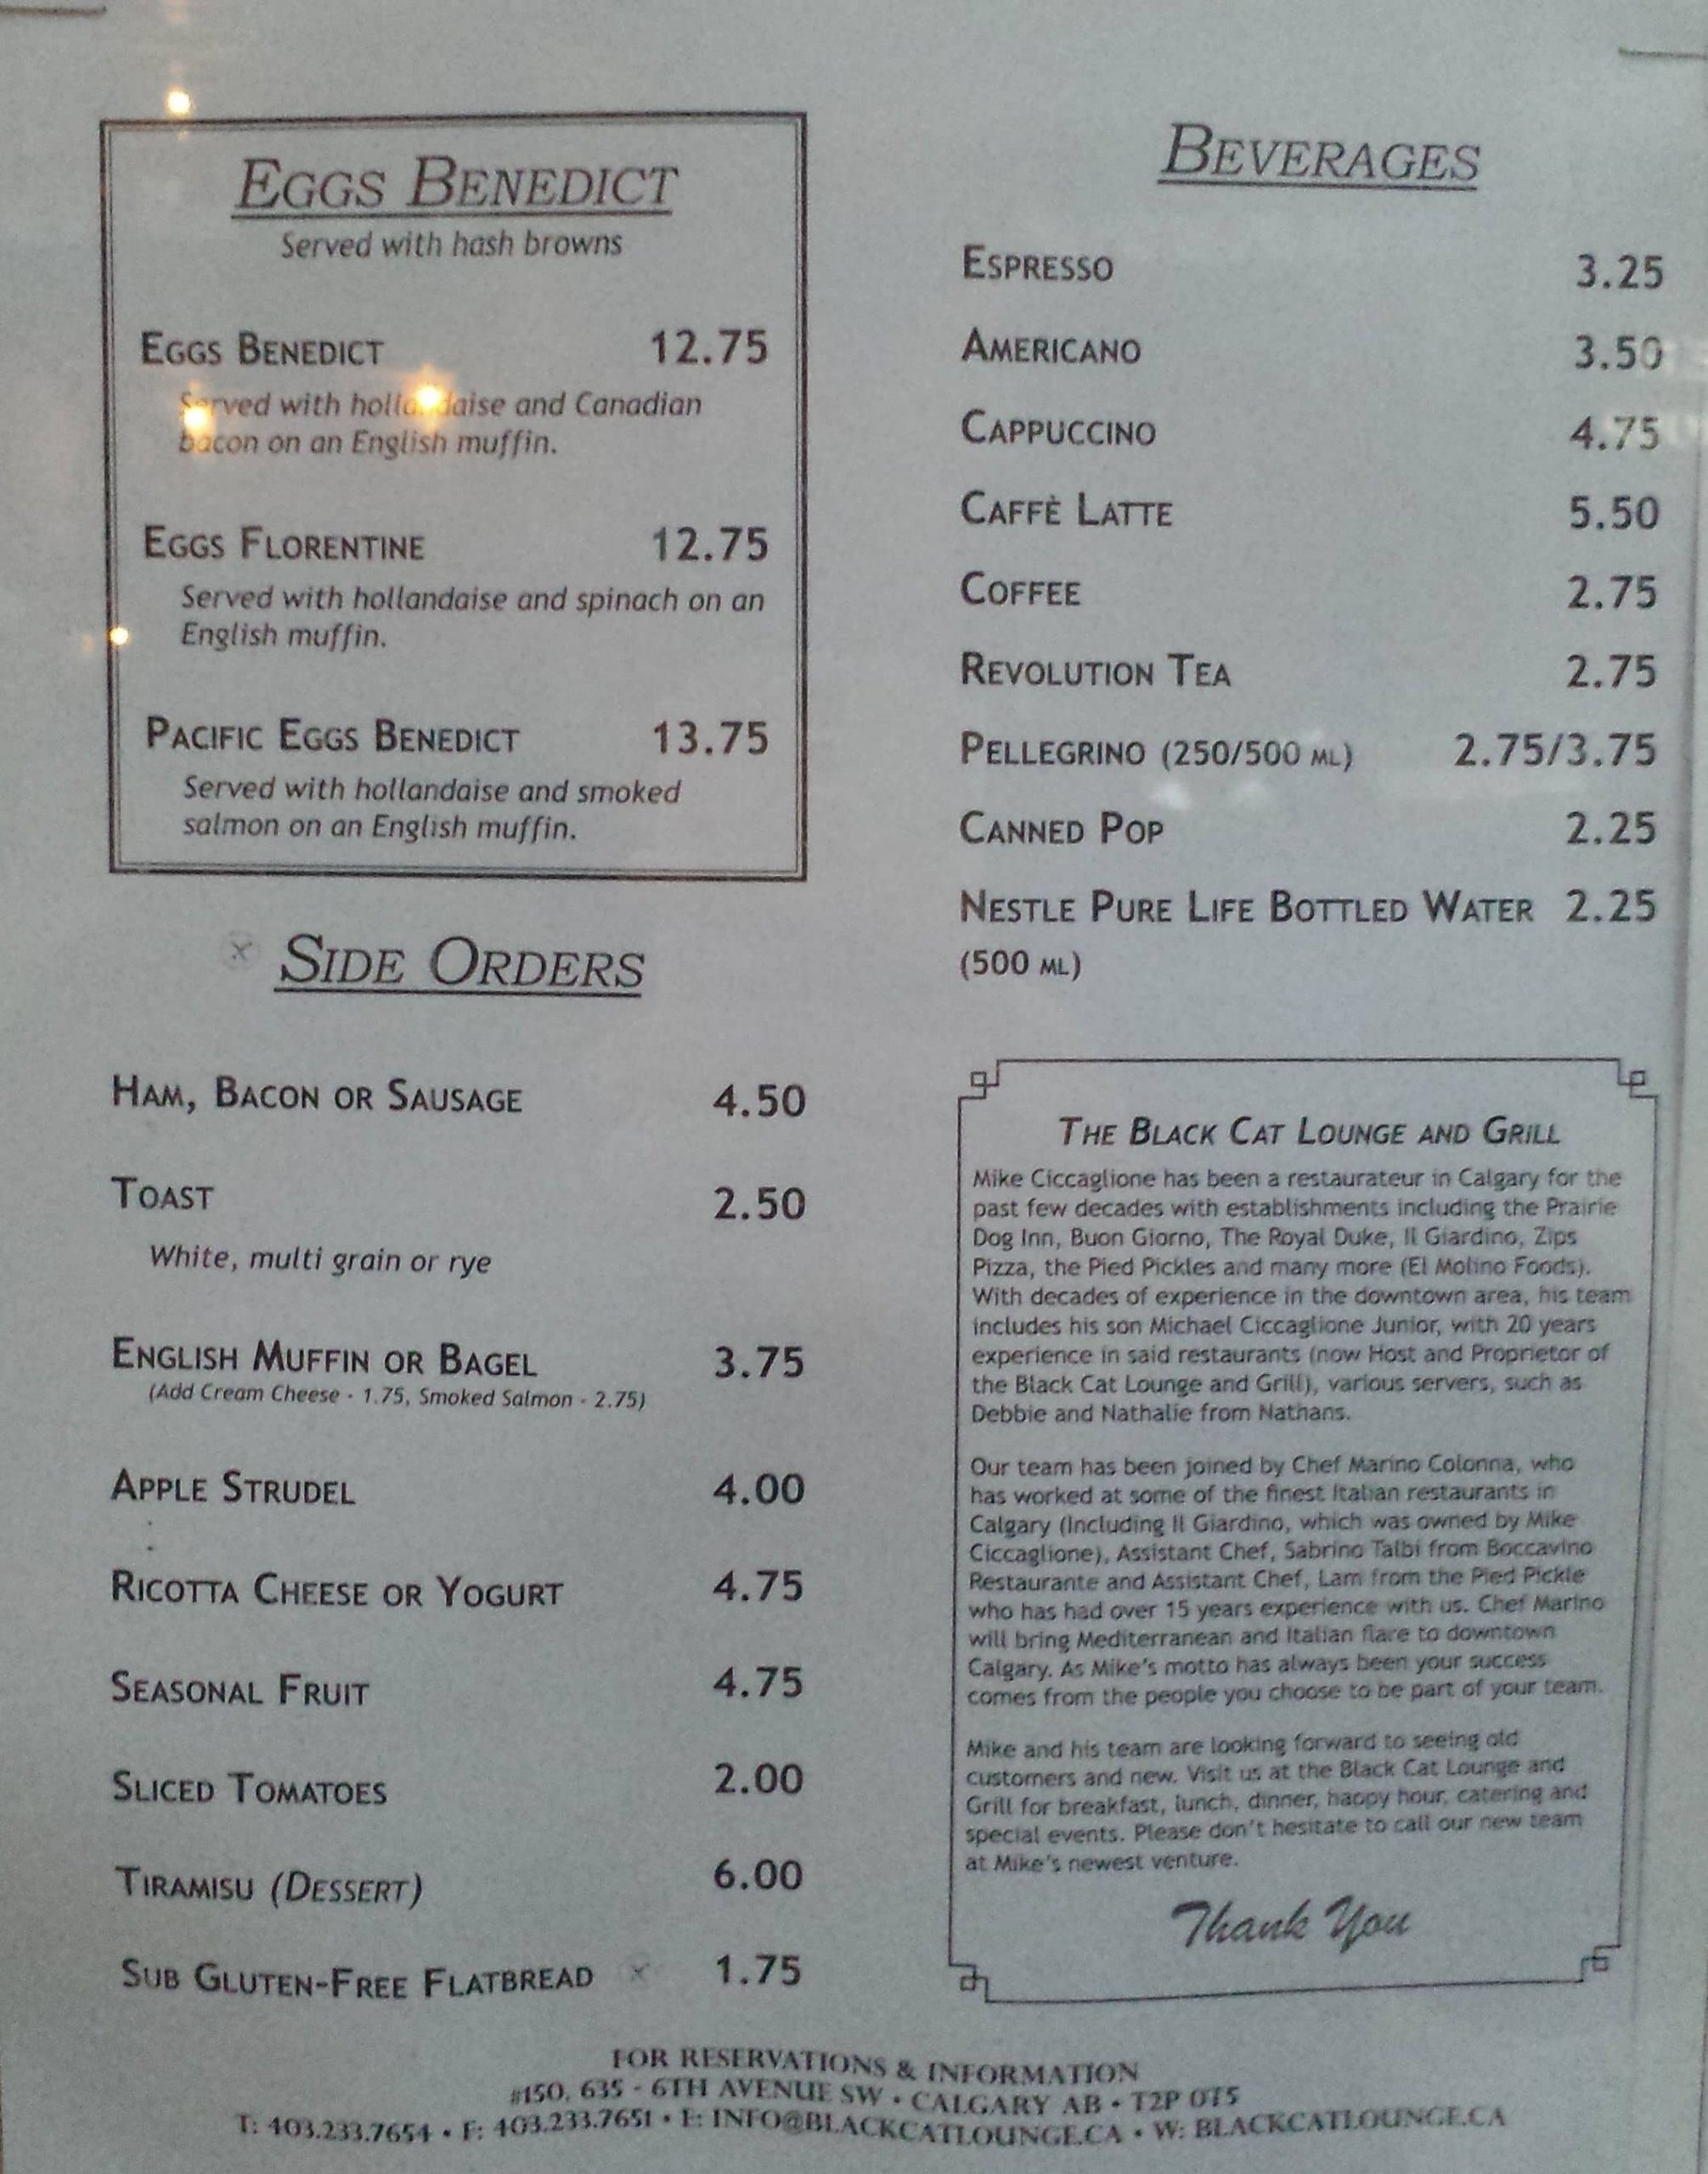 EGGS BENEDICT
Served with hash browns
EGGS BENEDICT 12.75
Served with hollandaise and Canadian
bacon on an English muffin.
EGGS FLORENTINE 12.75
Served with hollandaise and spinach on an
English muffin.
PACIFIC EGGS BENEDICT 13.75
Served with hollandaise and smoked
salmon on an English muffin.
SIDE ORDERS
HAM, BACON OR SAUSAGE 4.50
TOAST 2.50
White, multi grain or rye
ENGLISH MUFFIN OR BAGEL 3.75
(Add Cream Cheese - 1.75, Smoked Salmon - 2.75)
APPLE STRUDEL 4.00
RICOTTA CHEESE OR YOGURT 4.75
SEASONAL FRUIT 4.75
SLICED TOMATOES 2.00
TIRAMISU (DESSERT) 6.00
SUB GLUTEN-FREE FLATBREAD 1.75
BEVERAGES
ESPRESSO 3.25
AMERICANO 3.50
CAPPUCCINO 4.75
CAFFÈ LATTE 5.50
COFFEE 2.75
REVOLUTION TEA 2.75
PELLEGRINO (250/500 ML) 2.75/3.75
CANNED POP 2.25
NESTLE PURE LIFE BOTTLED WATER 2.25
(500 ML)
THE BLACK CAT LOUNGE AND GRILL
Mike Ciccaglione has been a restaurateur in Calgary for the
past few decades with establishments including the Prairie
Dog Inn, Buon Giorno, The Royal Duke, Il Giardino, Zips
Pizza, the Pied Pickles and many more (El Molino Foods).
With decades of experience in the downtown area, his team
includes his son Michael Ciccaglione Junior, with 20 years
experience in said restaurants (now Host and Proprietor of
the Black Cat Lounge and Grill), various servers, such as
Debbie and Nathalie from Nathans.
Our team has been joined by Chef Marino Colonna, who
has worked at some of the finest Italian restaurants in
Calgary (Including Il Giardino, which was owned by Mike
Ciccaglione), Assistant Chef, Sabrino Talbi from Boccavino
Restaurante and Assistant Chef, Lam from the Pied Pickle
who has had over 15 years experience with us. Chef Marino
will bring Mediterranean and Italian flare to downtown
Calgary. As Mike's motto has always been your success
comes from the people you choose to be part of your team.
Mike and his team are looking forward to seeing old
customers and new. Visit us at the Black Cat Lounge and
Grill for breakfast, lunch, dinner, happy hour, catering and
special events. Please don't hesitate to call our new team
at Mike's newest venture.
Thank You
FOR RESERVATIONS & INFORMATION
#150, 635 - 6TH AVENUE SW • CALGARY AB • T2P 0T5
T: 403.233.7654 • F: 403.233.7651 • E: INFO@BLACKCATLOUNGE.CA • W: BLACKCATLOUNGE.CA